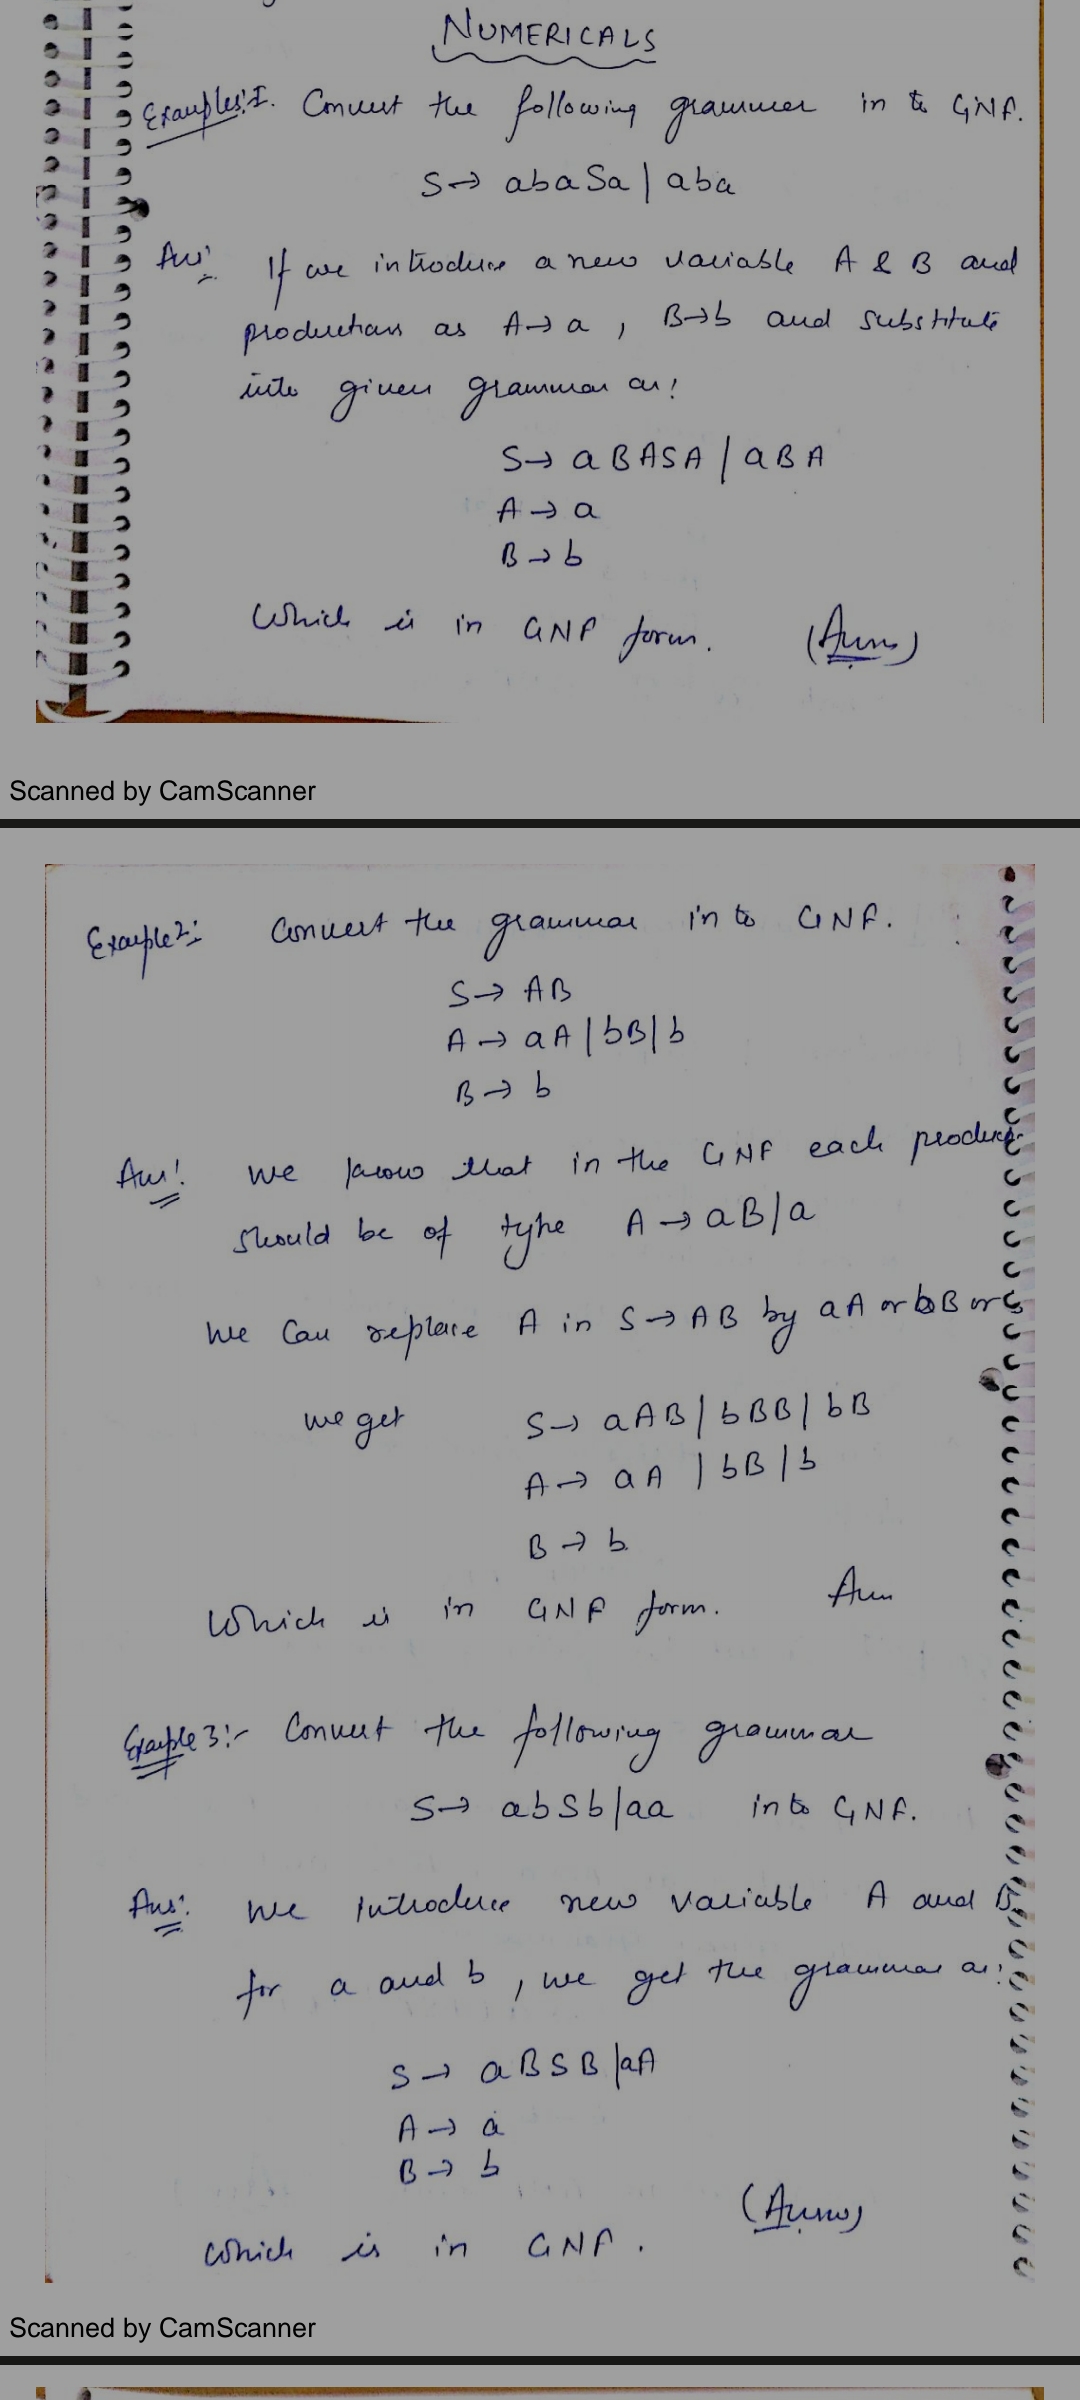 NUMERICALS
Examples:I. Convert the following grammer in to GNF.
S→ abaSa | aba
Ans: If we introduce a new variable A & B and
productions as A→a , B→b and substitute
into given grammar as:
S→ aBASA | aBA
A→a
B→b
Which is in GNF form. (Ans)
Scanned by CamScanner
Example2: Convert the grammar in to GNF.
S→ AB
A→ aA | bB | b
B→ b
Ans: We know that in the GNF each
should be of type A→aB/a
We can replace A in S→AB by aA or bB or
we get S→ aAB | bBB | bB
A→ aA | bB | b
B→ b
Which is in GNF form. Ans
Example 3:- Convert the following grammar
S→ abSb/aa into GNF.
Ans: We introduce new variable A and B
for a and b , we get the grammar as:
S→ aBSB |aA
A→ a
B→ b
(Ans)
Which is in GNF.
Scanned by CamScanner